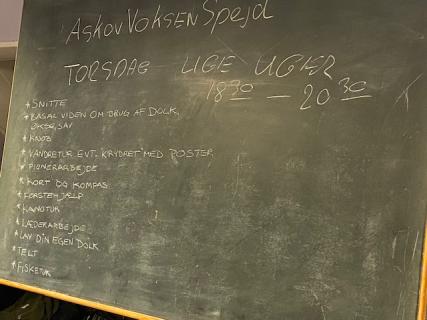 Askov Voksen Spejd
TORSDAG LIGE UGER
18 30 — 20 30
* SNITTE
* BASAL VIDEN OM BRUG AF DOLK,
ØKSE, SAV
* KNOB
* VANDRETUR EVT. KRYDRET MED POSTER
* PIONERARBEJDE
* KORT OG KOMPAS
* FØRSTEHJÆLP
* KANOTUR
* LÆDERARBEJDE
* LAV DIN EGEN DOLK
* TELT
* FISKETUR